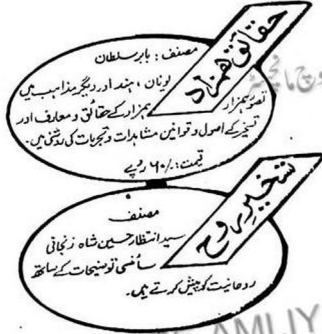 حقائق ہمزاد
مصنف: بابر سلطان
یونان، ہند اور دیگر مذاہب میں
تصور ہمزاد، ہمزاد کے حقائق و معارف اور
تسخیر کے اصول و قوانین مشاہدات و تجربات کی روشنی میں۔
قیمت: ۶۰/ روپے
تسخیر روح
مصنف
سید انتظار حسین شاہ زنجانی
سائنسی توضیحات کے ساتھ
روحانیت کو پیش کرتے ہیں۔
AMLIY